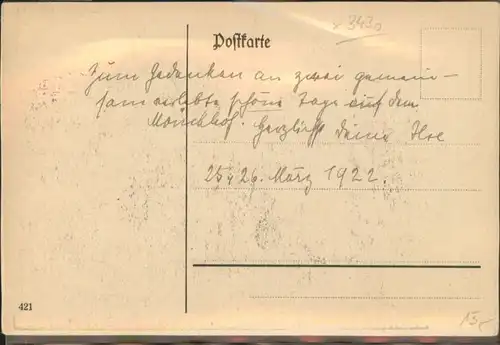 3430
Postkarte
Zum Gedenken an zwei gemein-
sam verlebte schöne Tage auf dem
Mönchhof. Herzlichst Deine Ilse
25. u. 26. März 1922.
421
15,-